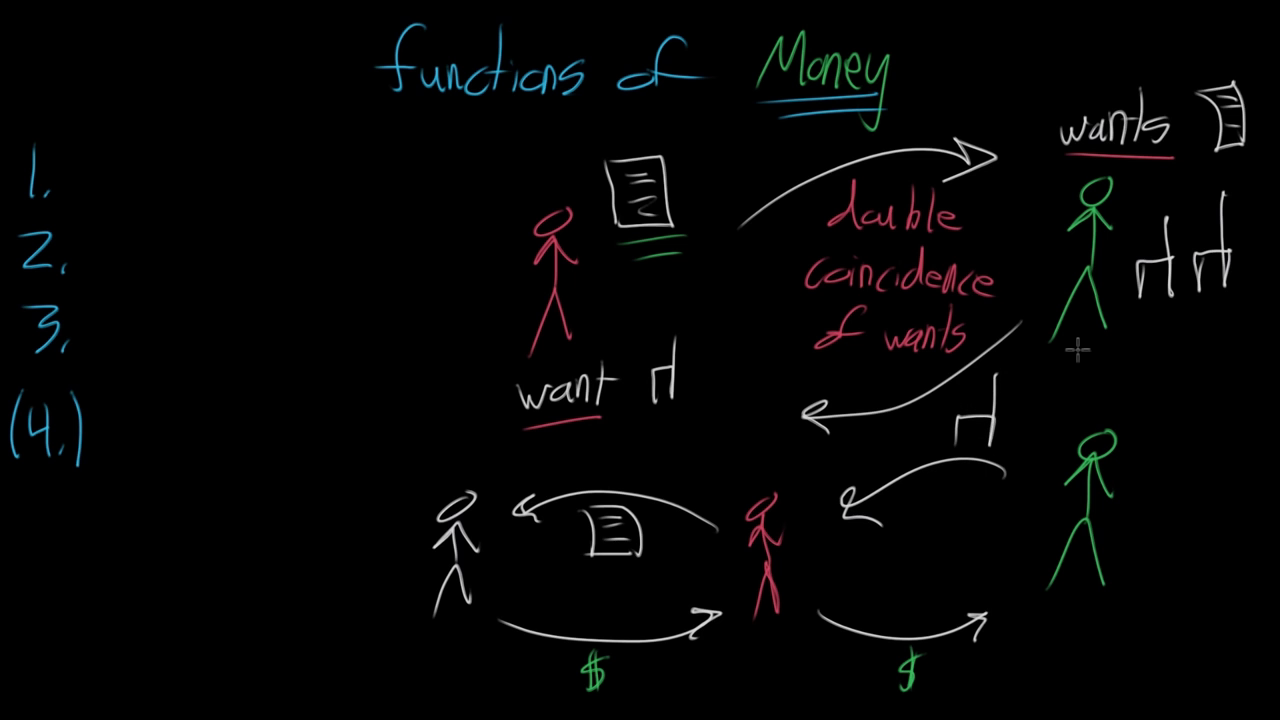 functions of Money
wants
1.
double
2.
coincidence
3.
of wants
want
(4.)
$
$